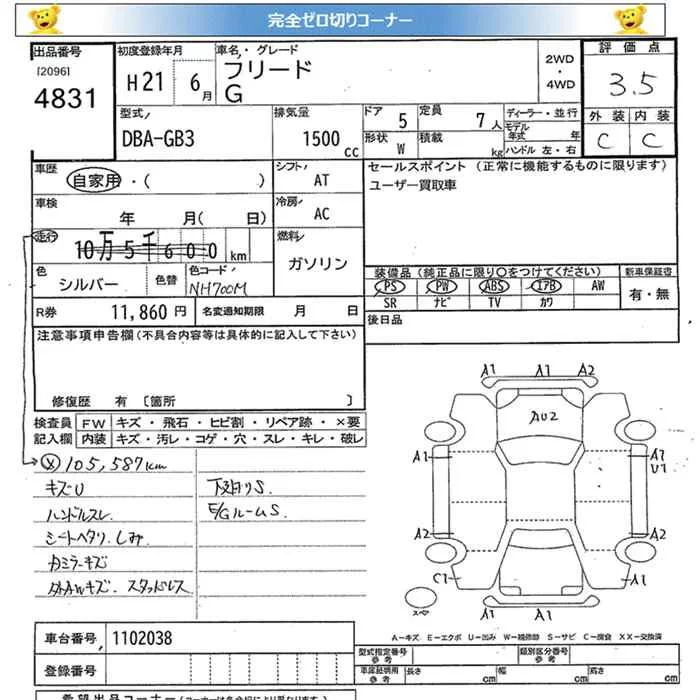 完全ゼロ切りコーナー
出品番号
[2096]
4831
初度登録年月
H21 6月
車名・グレード
フリード
G
2WD
・
4WD
評価点
3.5
外装 内装
C C
型式
DBA-GB3
排気量
1500cc
ドア 5
定員 7人
形状 W
積載 kg
ディーラー・並行
モデル年式 年
ハンドル 左・右
車歴
自家用・( )
シフト AT
セールスポイント (正常に機能するものに限ります)
ユーザー買取車
車検
年 月( 日)
冷房 AC
走行
10万5千600km
燃料 ガソリン
色 シルバー
色替
色コード NH700M
装備品(純正品に限り○をつけてください)
新車保証書
PS PW ABS エアB AW
SR ナビ TV カワ
有・無
R券 11,860円
名変通知期限 月 日
後日品
注意事項申告欄(不具合内容等は具体的に記入して下さい)
修復歴 有 〔箇所 〕
検査員記入欄
FW キズ・飛石・ヒビ割・リペア跡・×要
内装 キズ・汚レ・コゲ・穴・スレ・キレ・破レ
Ⓧ105,587km
キズU
ハンドルスレ
シートヘタリ、しみ
カミラーキズ
外AWキズ スタッドレス
下廻りS
E/GルームS
A1 A1 A2
AU2
A1
A1
U1
A2
A2
C1
A1
A1
スペア
A－キズ E－エクボ U－凹み W－補修跡 S－サビ C－腐食 XX－交換済
車台番号 1102038
登録番号
型式指定番号 参考
類別区分番号 参考
車庫証明用 参考
長さ cm
幅 cm
高さ cm
希望出品コーナー